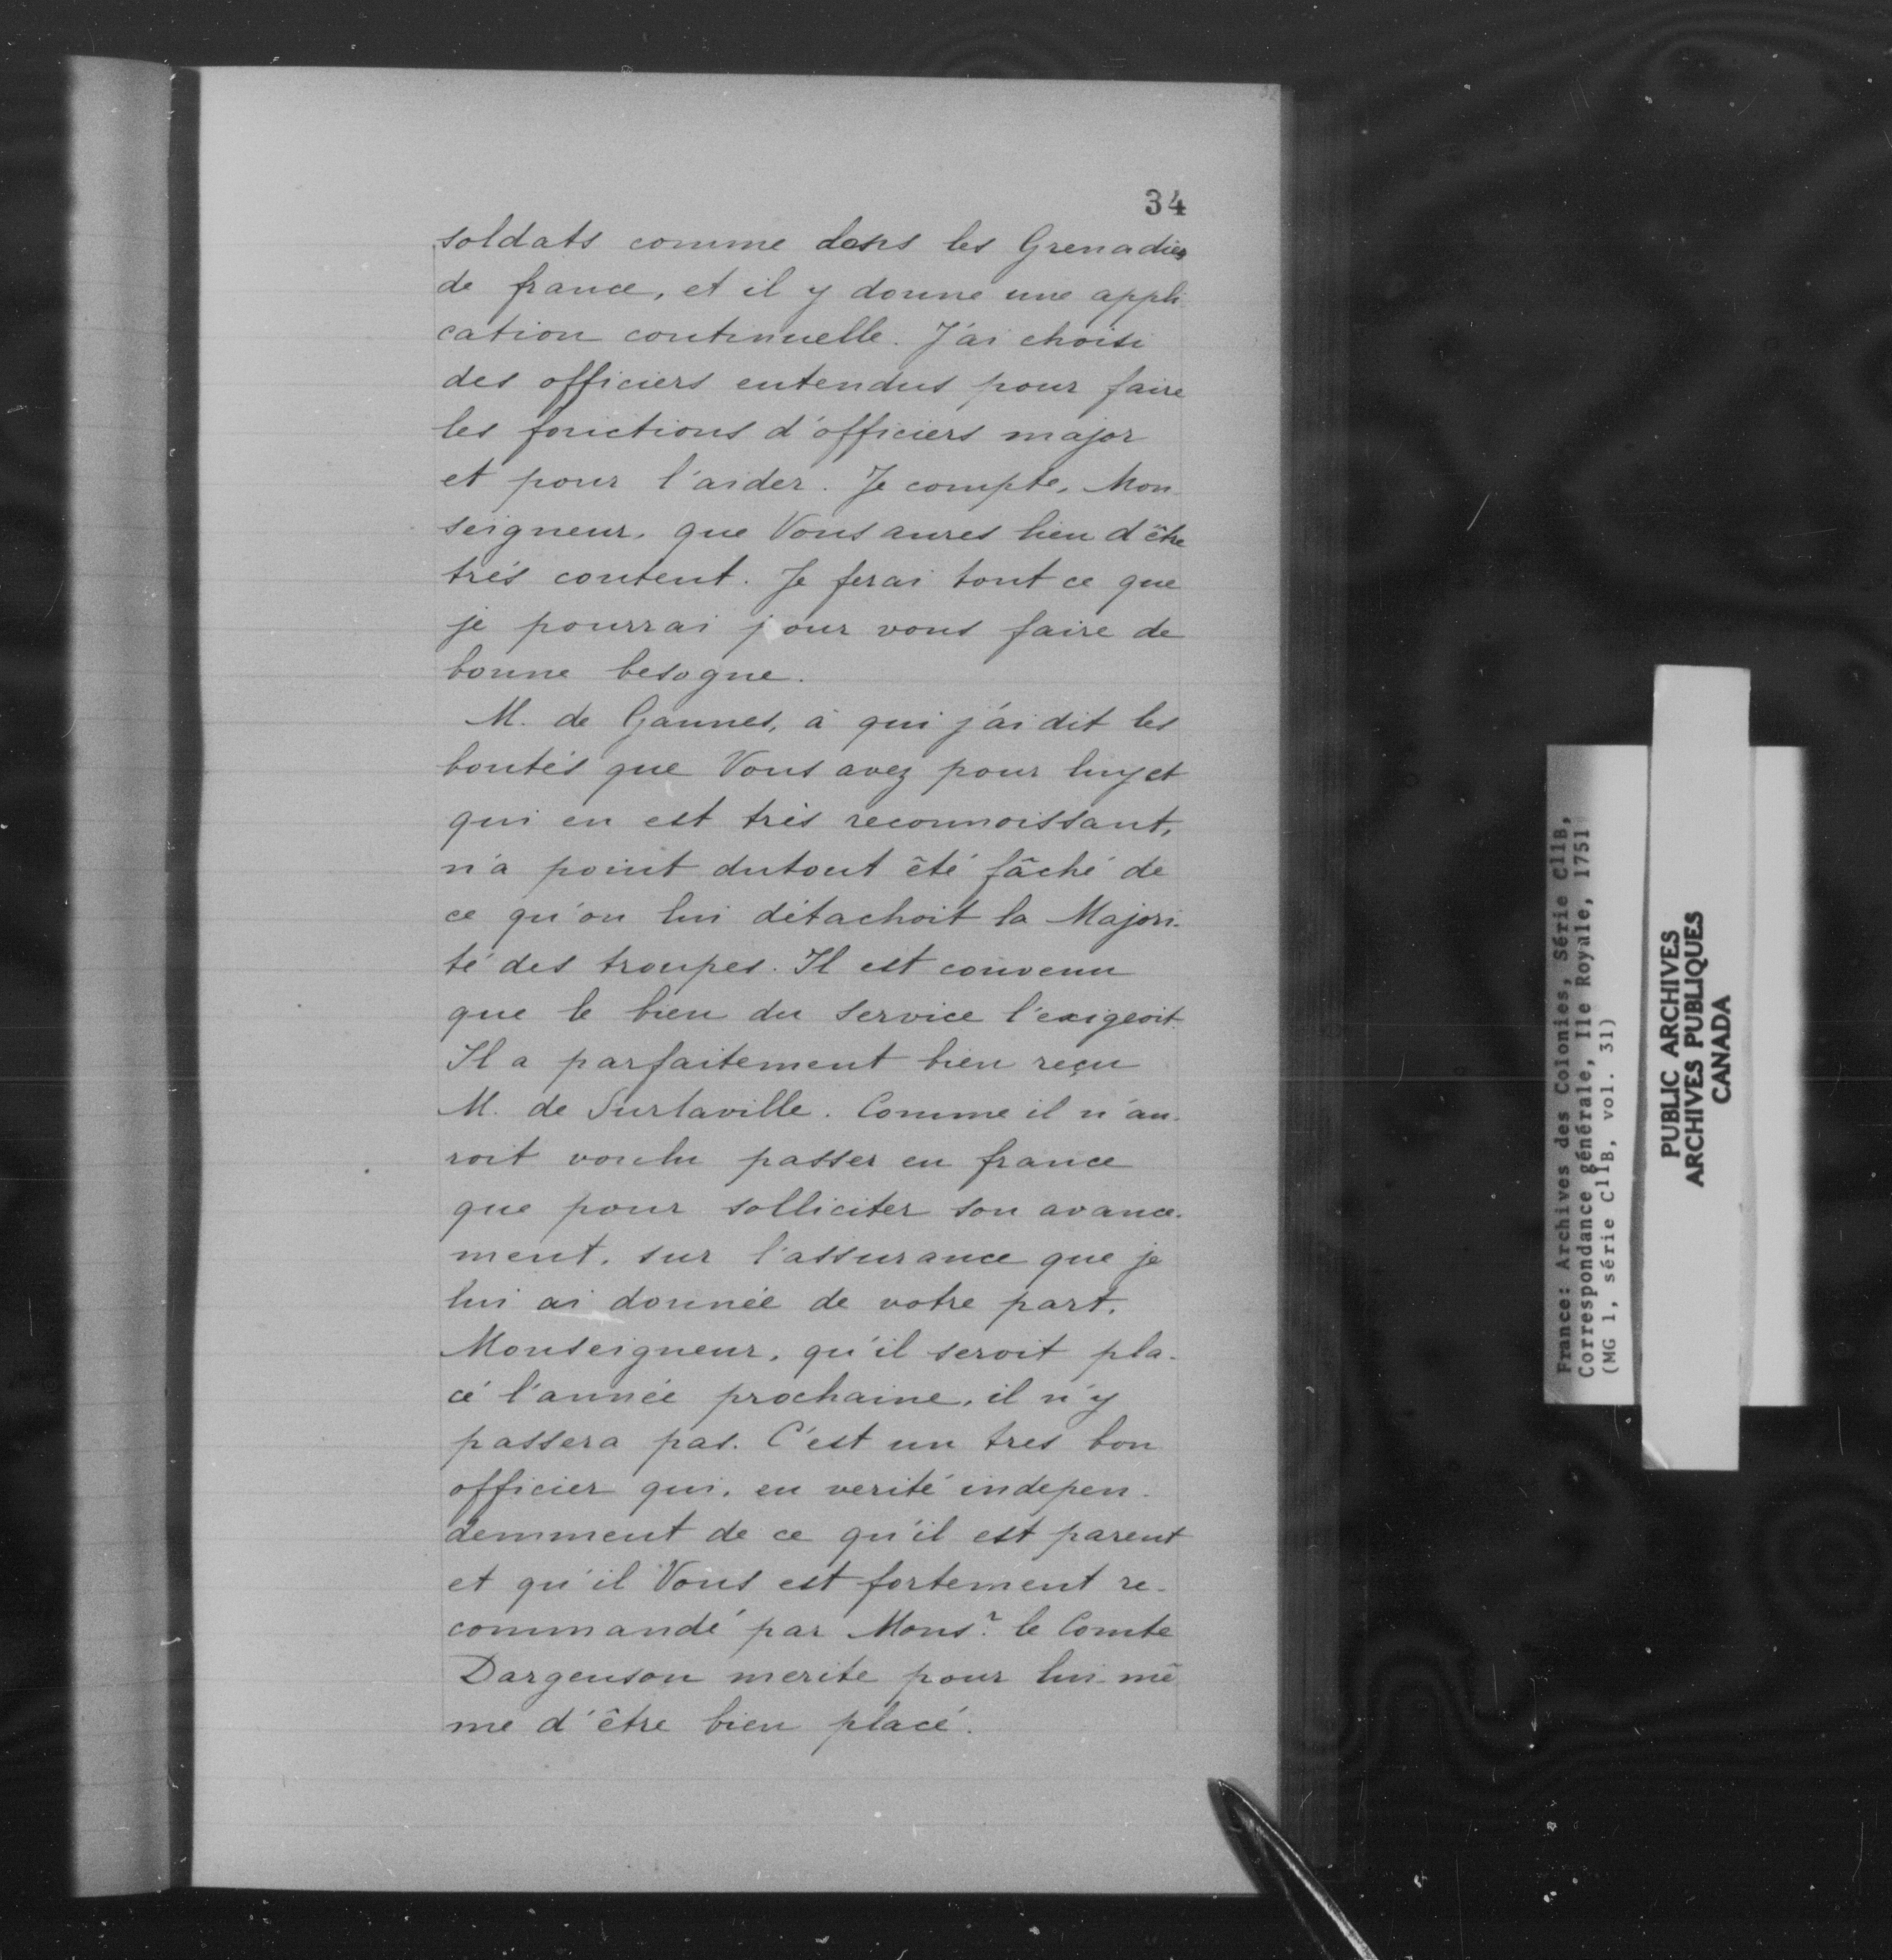 34
soldats comme dans les Grenadiers
de france, et il y donne une appli-
cation continuelle. J'ai choisi
des officiers entendus pour faire
les fonctions d'officiers major
et pour l'aider. Je compte, Mon-
seigneur, que Vous aures lieu d'être
trés content. Je ferai tout ce que
je pourrai pour vous faire de
bonne besogne.
M. de Gannes, à qui j'ai dit les
bontés que Vous avez pour luy et
qui en est très reconnoissant,
n'a point dutout été fâché de
ce qu'on lui détachoit la Majori-
té des troupes. Il est convenu
que le bien du service l'exigeoit.
Il a parfaitement bien reçu
M. de Surlaville. Comme il n'au-
roit voulu passer en france
que pour solliciter son avance-
ment, sur l'assurance que je
lui ai donnée de votre part,
Monseigneur, qu'il seroit pla-
cé l'année prochaine, il n'y
passera pas. C'est un tres bon
officier qui, en verité indepen-
demment de ce qu'il est parent
et qu'il Vous est fortement re-
commandé par Mons.r le Comte
Dargenson merite pour lui-mê
me d'être bien placé.
France: Archives des Colonies, Série C11B,
Correspondance générale, Ile Royale, 1751
(MG 1, série C11B, vol. 31)
PUBLIC ARCHIVES
ARCHIVES PUBLIQUES
CANADA